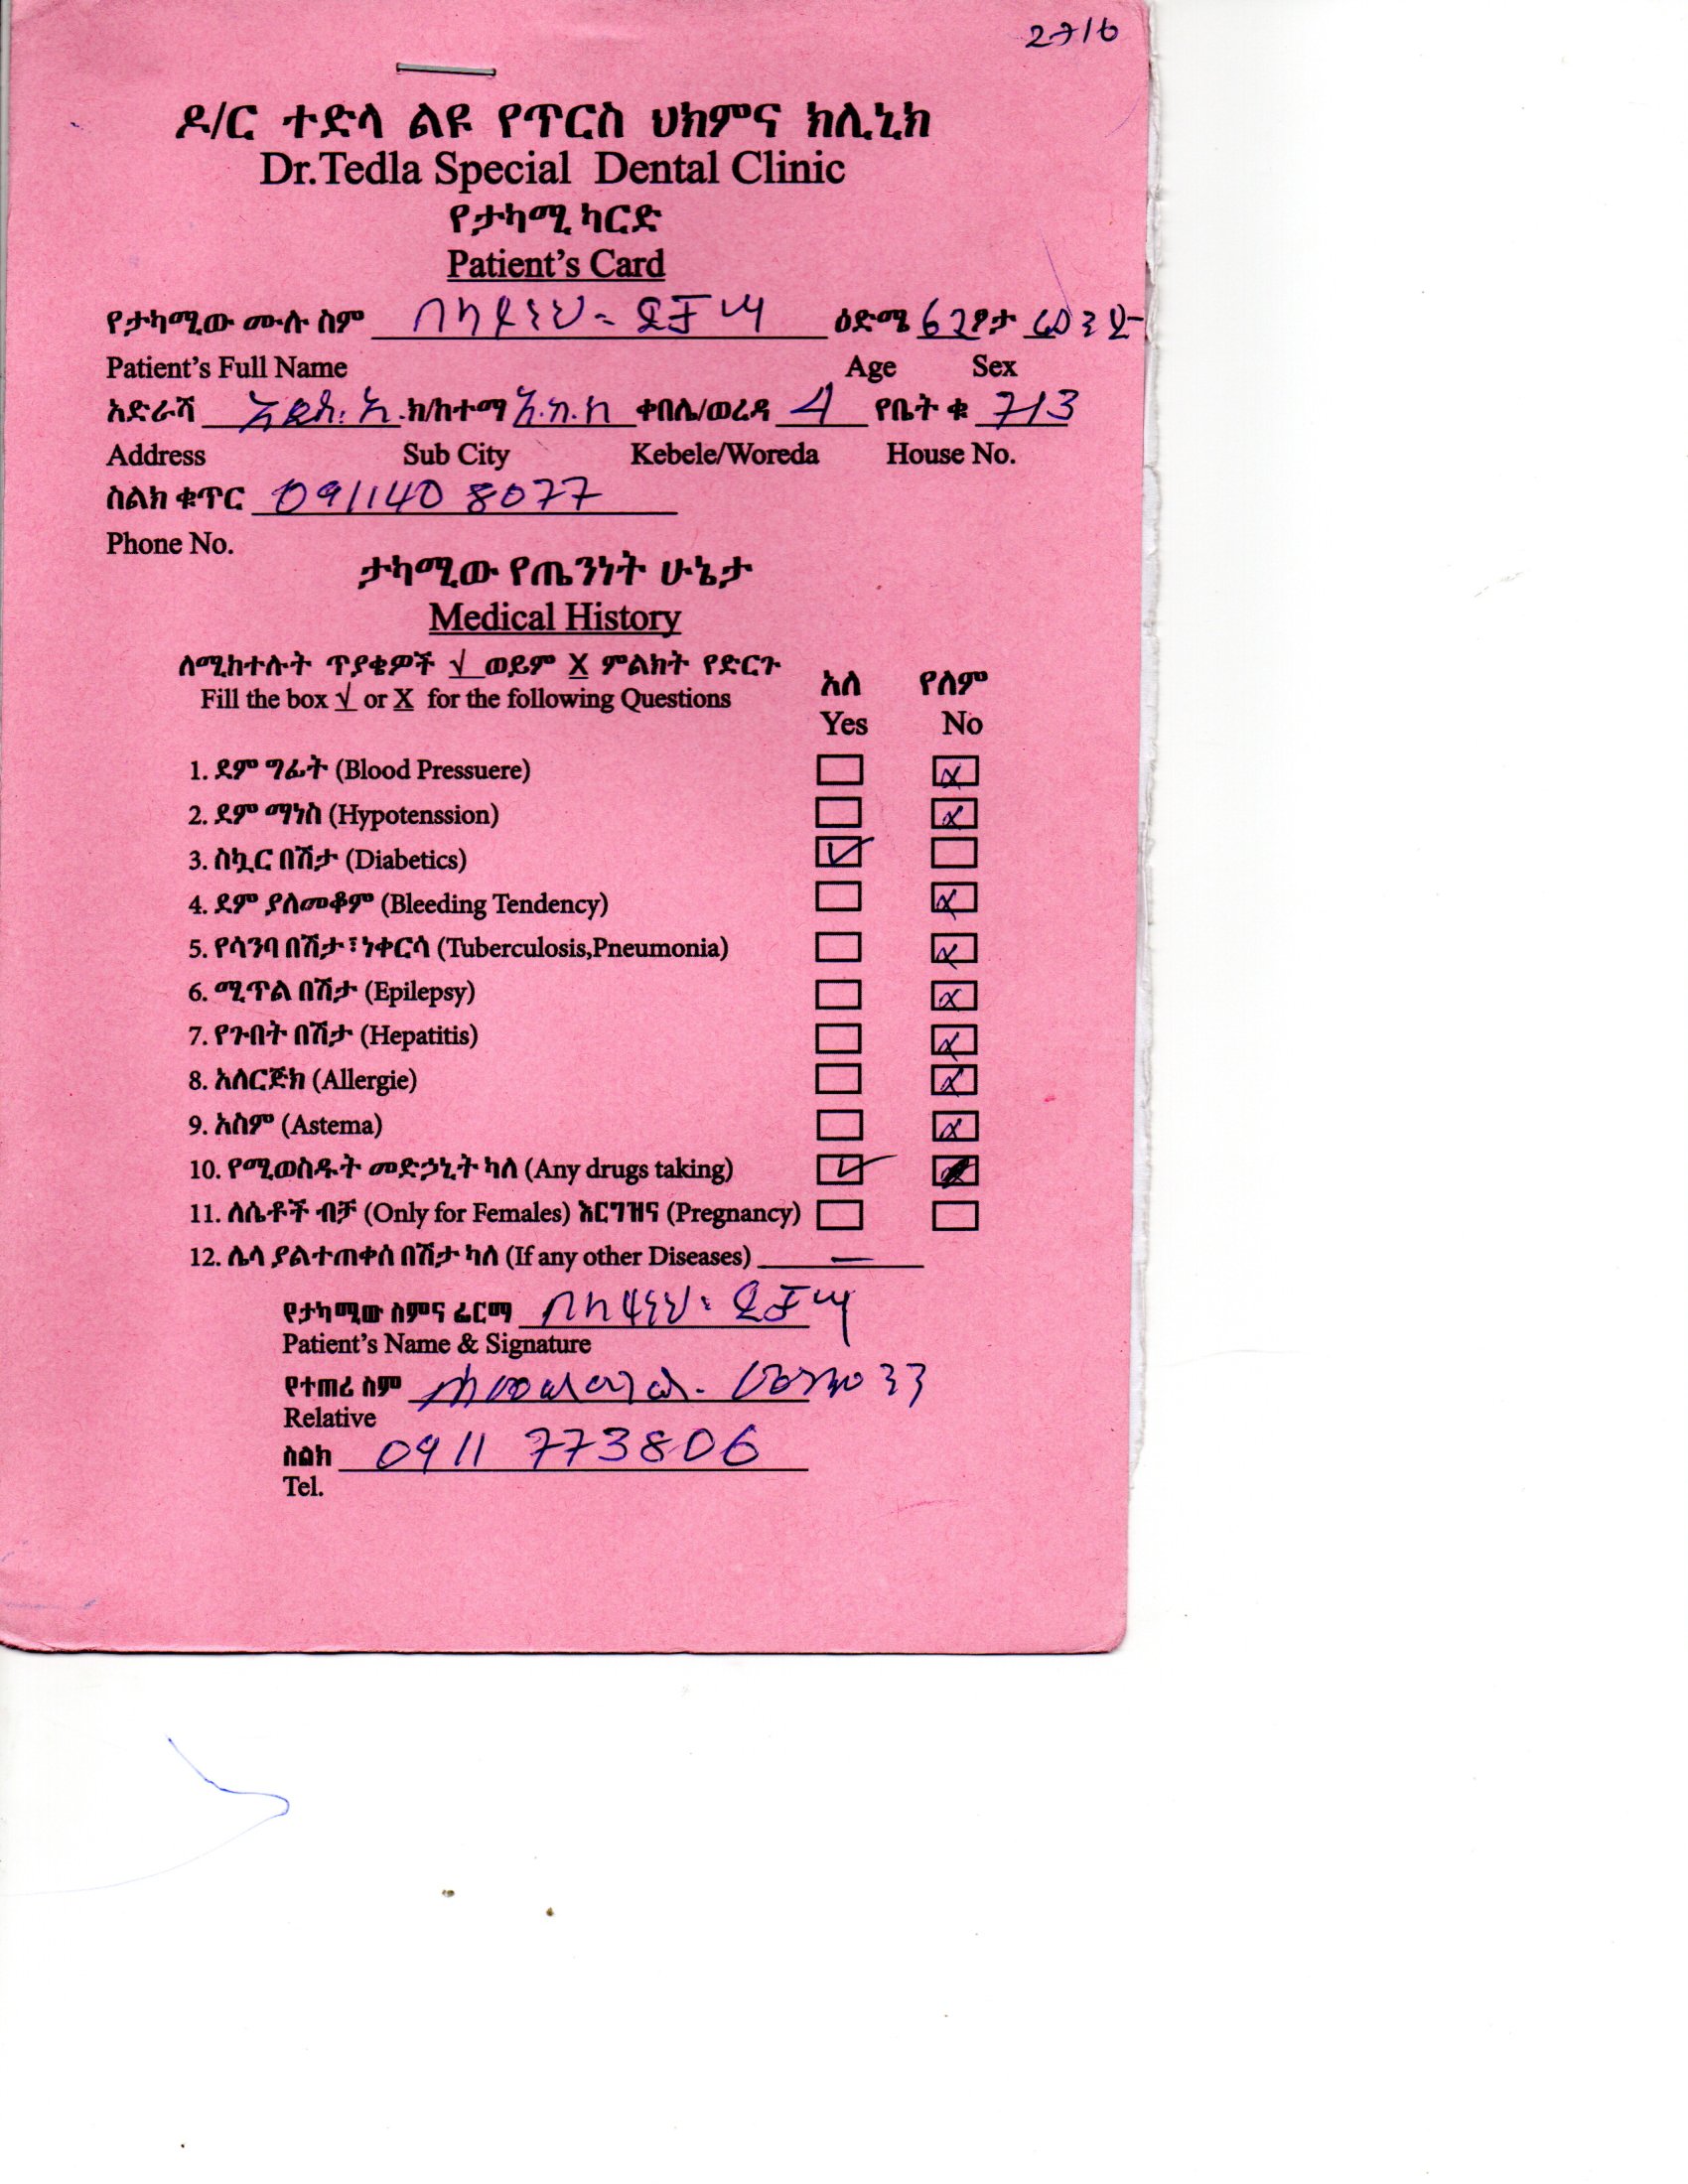 2716
ዶ/ር ተድላ ልዩ የጥርስ ህክምና ክሊኒክ
Dr.Tedla Special Dental Clinic
የታካሚ ካርድ
Patient's Card
የታካሚው ሙሉ ስም ዕድሜ 62 ፆታ ወንድ
Patient's Full Name Age Sex
አድራሻ አዲስ አ. ክ/ከተማ ቀበሌ/ወረዳ 4 የቤት ቁ 713
Address Sub City Kebele/Woreda House No.
ስልክ ቁጥር 091140 8077
Phone No.
ታካሚው የጤንነት ሁኔታ
Medical History
ለሚከተሉት ጥያቄዎች √ ወይም X ምልክት የድርጉ
Fill the box √ or X for the following Questions
አለ የለም
Yes No
1. ደም ግፊት (Blood Pressuere)
2. ደም ማነስ (Hypotenssion)
3. ስኳር በሽታ (Diabetics)
4. ደም ያለመቆም (Bleeding Tendency)
5. የሳንባ በሽታ፣ ነቀርሳ (Tuberculosis,Pneumonia)
6. ሚጥል በሽታ (Epilepsy)
7. የጉበት በሽታ (Hepatitis)
8. አለርጅክ (Allergie)
9. አስም (Astema)
10. የሚወስዱት መድኃኒት ካለ (Any drugs taking)
11. ለሴቶች ብቻ (Only for Females) እርግዝና (Pregnancy)
12. ሌላ ያልተጠቀሰ በሽታ ካለ (If any other Diseases) —
የታካሚው ስምና ፊርማ
Patient's Name & Signature
የተጠሪ ስም
Relative
ስልክ 0911 773806
Tel.